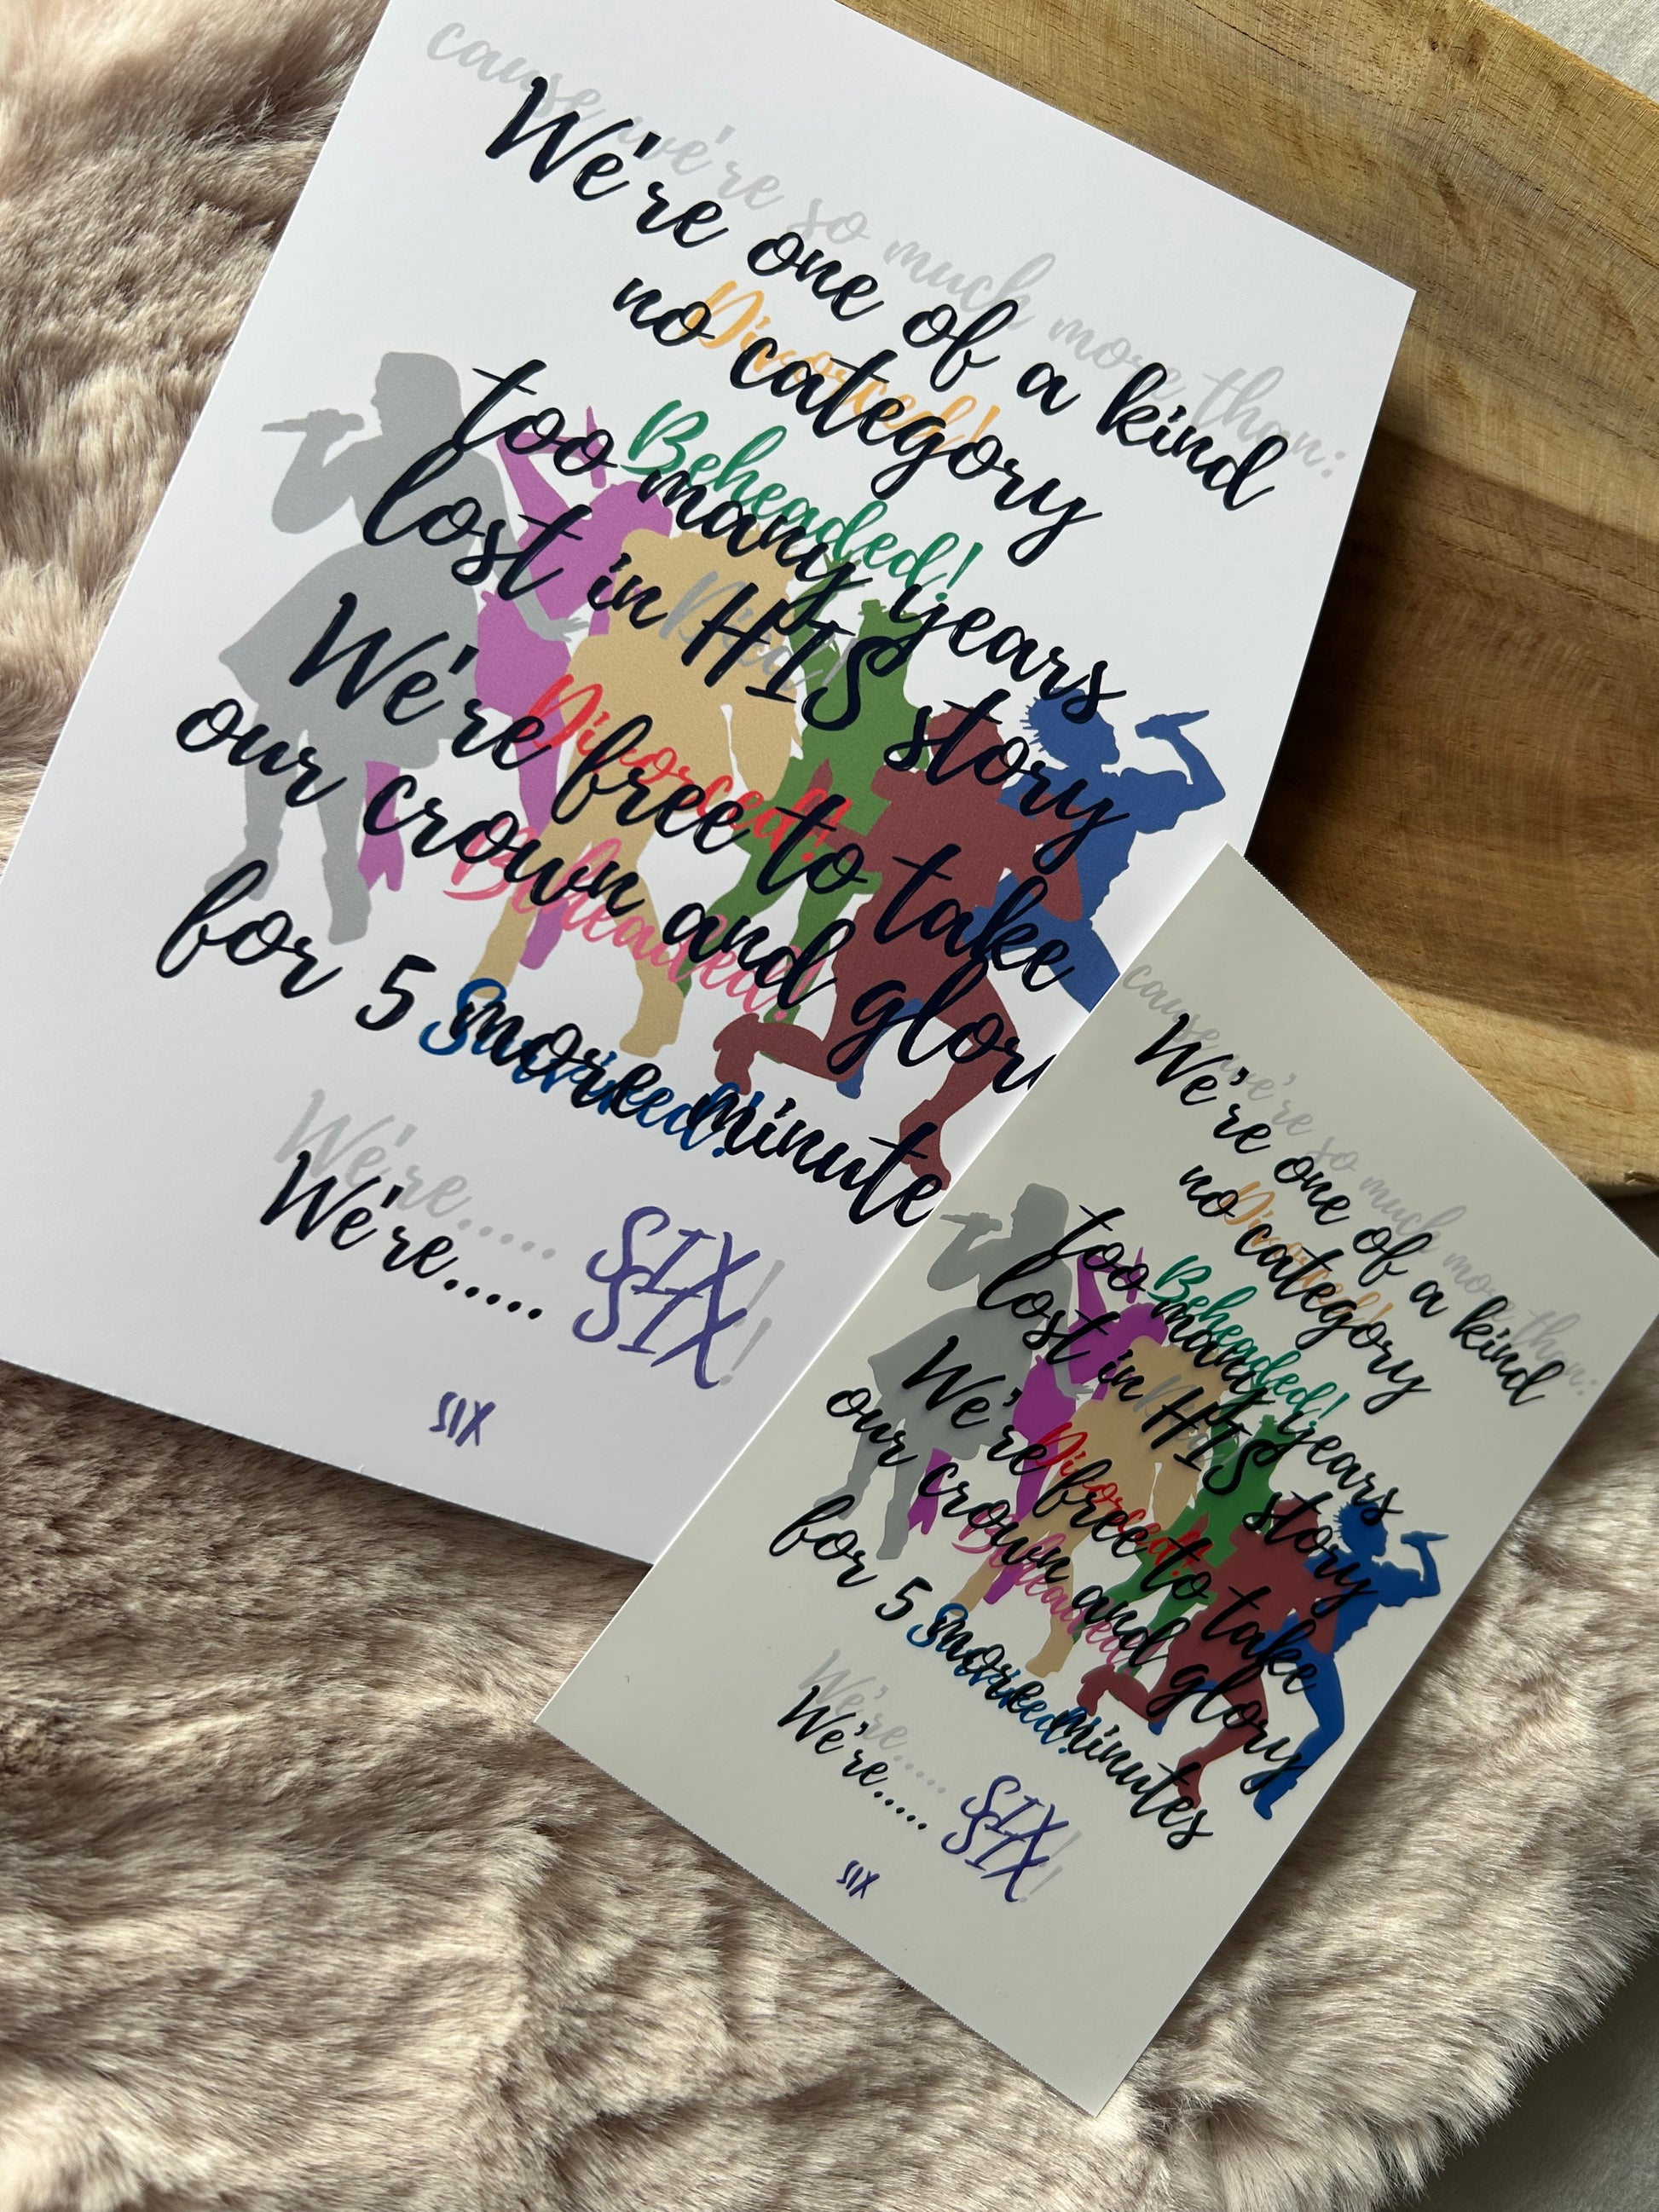 cause we're so much more than:
We're one of a kind
no category
Divorced!
Beheaded!
too many years
lost in HIS story
Died!
We're free to take
Divorced!
our crown and glory
Beheaded!
for 5 more minute
Survived!
We're..... SIX!
We're..... SIX!
SIX
cause we're so much more than:
We're one of a kind
no category
Divorced!
Beheaded!
too many years
lost in HIS story
Died!
We're free to take
Divorced!
our crown and glory
Beheaded!
for 5 more minutes
Survived!
We're..... SIX!
We're..... SIX!
SIX